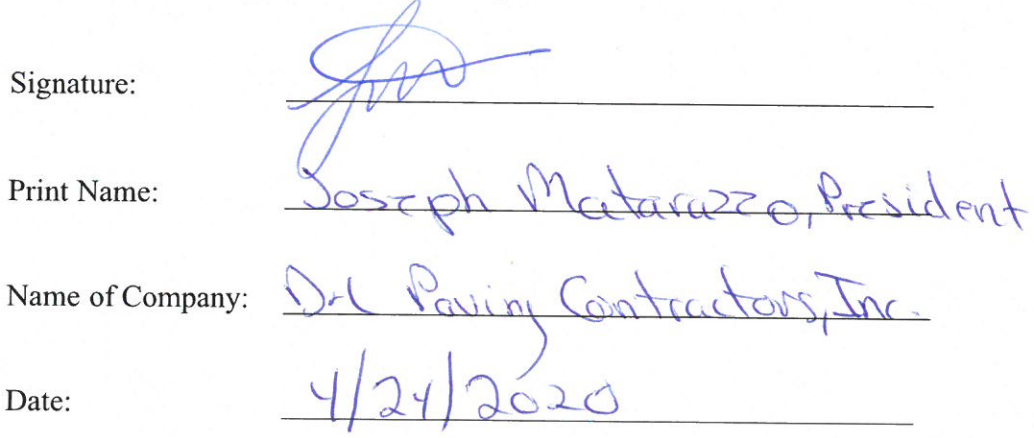 Signature:
Print Name: Joseph Matarazzo, President
Name of Company: Paving Contractors, Inc.
Date: 4/24/2020